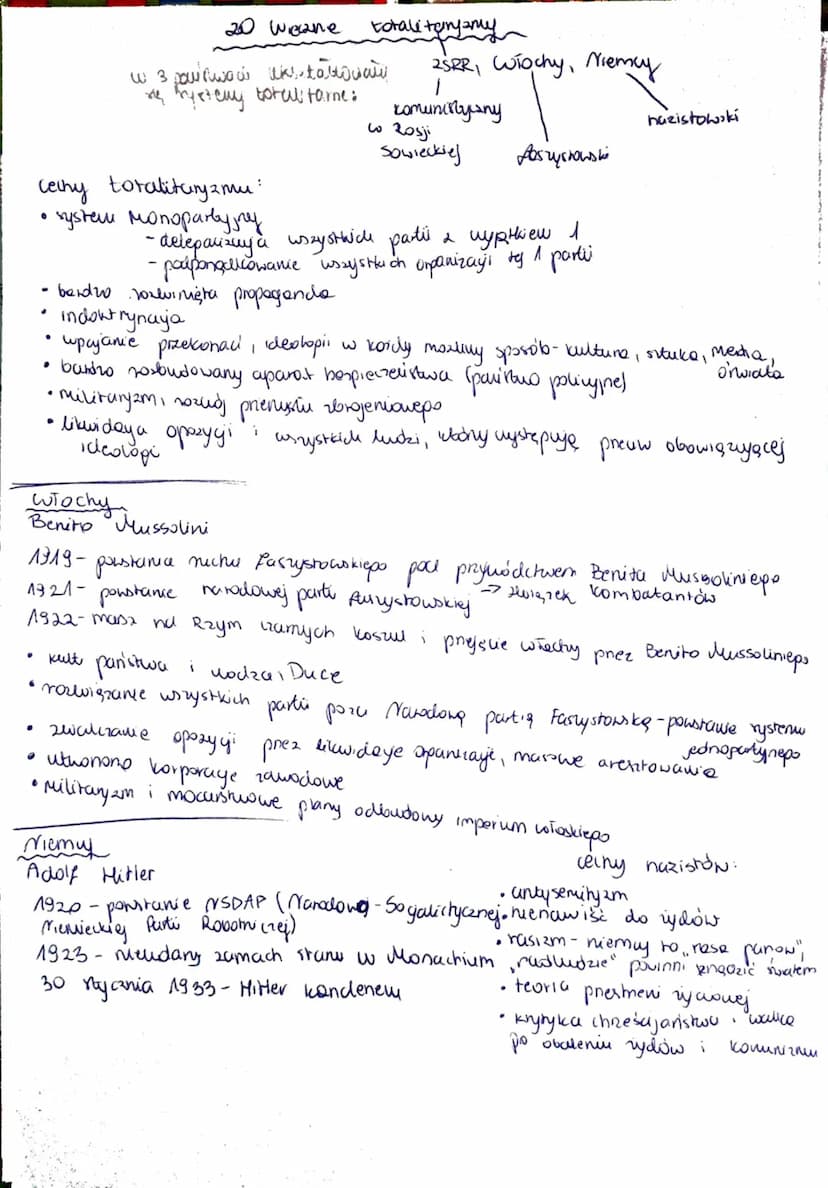 20 wieczne totalitaryzmy
w 3 państwach ukształtowały
się systemy totalitarne:
ZSRR, Włochy, Niemcy
komunistyczny
w Rosji
Sowieckiej
faszystowski
nazistowski
Cechy totalitaryzmu:
• system monopartyjny
- delegalizacja wszystkich partii z wyjątkiem 1
- podporządkowanie wszystkich organizacji tej 1 partii
• bardzo rozwinięta propaganda
• indoktrynacja
• wpajanie przekonań, ideologii w każdy możliwy sposób - kultura, sztuka, media,
oświata
• bardzo rozbudowany aparat bezpieczeństwa (państwo policyjne)
• militaryzm, rozwój przemysłu zbrojeniowego
• likwidacja opozycji i wszystkich ludzi, którzy występują przeciw obowiązującej
ideologi
Włochy
Benito Mussolini
1919 - powstania ruchu faszystowskiego pod przywództwem Benita Mussoliniego
1921 - powstanie narodowej partii faszystowskiej → związek kombatantów
1922 - marsz na Rzym czarnych koszul i przejęcie włachy przez Benito Mussoliniego
• kult państwa i wodza, Duce
• rozwiązanie wszystkich partii poza Narodową partią Faszystowską - powstanie systemu
jednopartyjnego
• zwalczanie opozycji przez likwidacje organizacje, masowe aresztowania
• utworzono korporacje zawodowe
• militaryzm i mocarstwowe plany odbudowy imperium włoskiego
Niemcy
Adolf Hitler
1920 - powstanie NSDAP (Narodowo - Socjalistycznej
Niemieckiej Partii Robotniczej)
1923 - nieudany zamach stanu w Monachium
30 stycznia 1933 - Hitler kanclerzem
cechy nazistów:
• antysemityzm
• nienawiść do żydów
• rasizm - niemcy to „rasa panów",
„nadludzie" powinni rządzić światem
• teoria przestrzeni życiowej
• krytyka chrześcijaństwa, walka
po obaleniu żydów i komunizmu